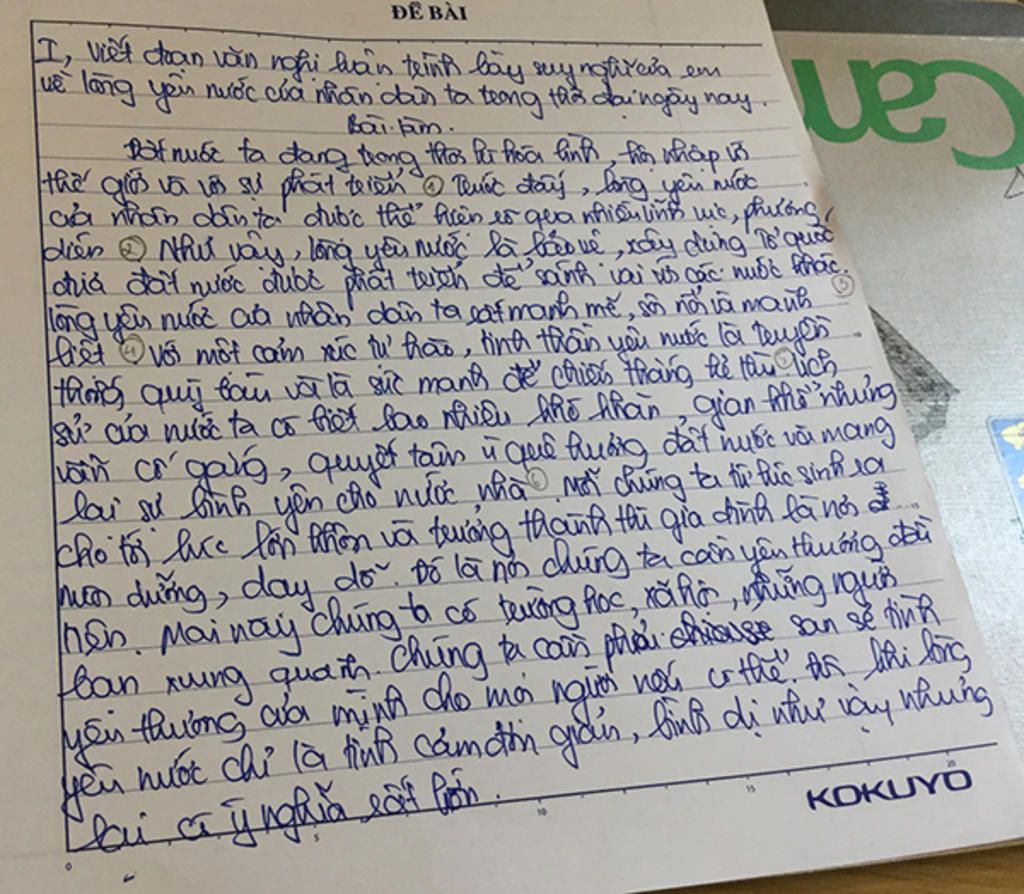 ĐỀ BÀI
I, viết đoạn văn nghị luận trình bày suy nghĩ của em
về lòng yêu nước của nhân dân ta trong thời đại ngày nay.
Bài làm.
Đất nước ta đang trong thời kì hòa bình, hội nhập với
thế giới và với sự phát triển ① Trước đây, lòng yêu nước
của nhân dân ta được thể hiện rõ qua nhiều lĩnh vực, phương
diện ② Như vậy, lòng yêu nước là bảo vệ, xây dựng Tổ quốc
đưa đất nước được phát triển để sánh vai với các nước khác. ③
lòng yêu nước của nhân dân ta rất mạnh mẽ, sôi nổi và mãnh
liệt ④ Với một cảm xúc tự hào, tinh thần yêu nước là truyền
thống quý báu và là sức mạnh để chiến thắng kẻ thù ⑤ Lịch
sử của nước ta có biết bao nhiêu khó khăn, gian khổ nhưng
vẫn cố gắng, quyết tâm vì quê hương đất nước và mang
lại sự bình yên cho nước nhà ⑥ Mỗi chúng ta từ lúc sinh ra
cho tới lúc lớn khôn và trưởng thành thì gia đình là nơi
nuôi dưỡng, dạy dỗ. Đó là nơi chúng ta cần yêu thương đầu
tiên. Mai này chúng ta có trường học, xã hội, những người
bạn xung quanh. Chúng ta cần phải san sẻ tình
yêu thương của mình cho mọi người nếu có thể. Đôi khi lòng
yêu nước chỉ là tình cảm đơn giản, bình dị như vậy nhưng
lại có ý nghĩa rất lớn.
KOKUYO
0 5 10 15 20
Can